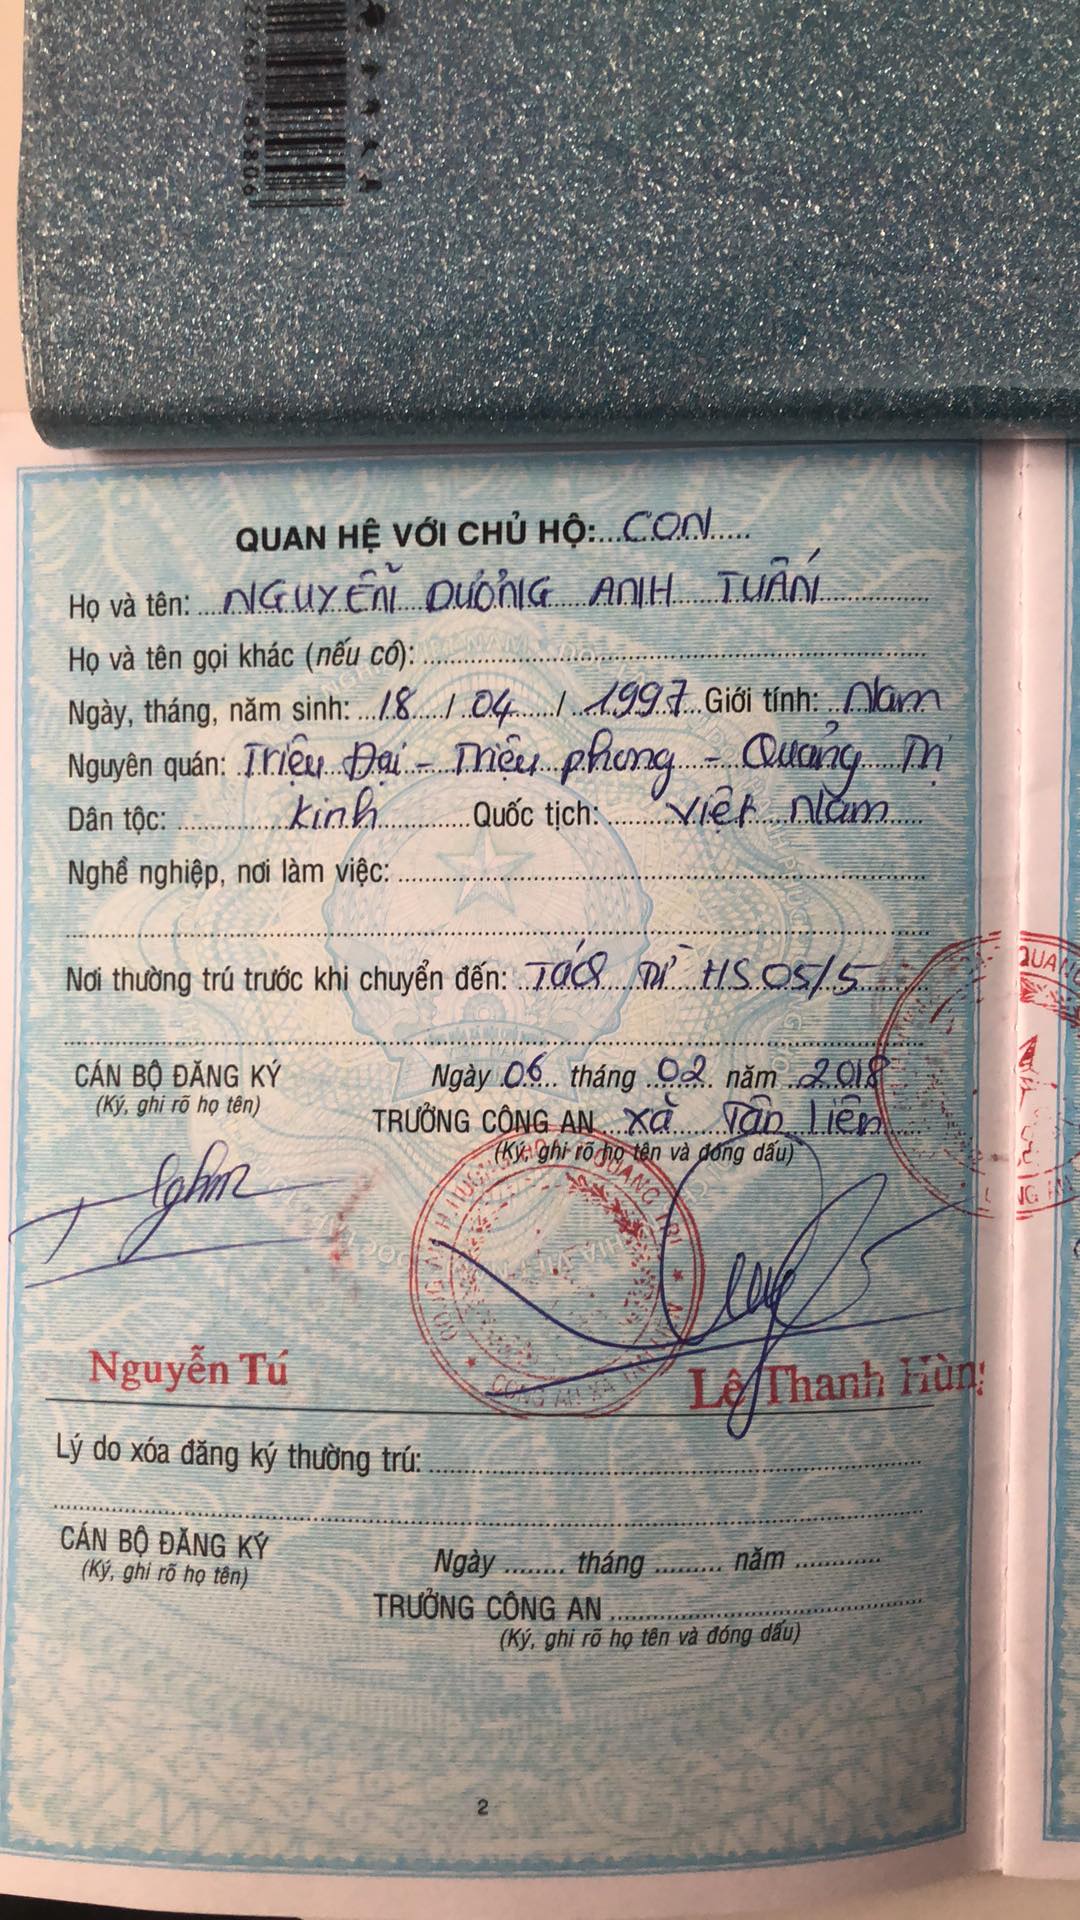 QUAN HỆ VỚI CHỦ HỘ: CON
Họ và tên: NGUYỄN DƯƠNG ANH TUẤN
Họ và tên gọi khác (nếu có):
Ngày, tháng, năm sinh: 18 / 04 / 1997 Giới tính: Nam
Nguyên quán: Triệu Đại - Triệu phong - Quảng Trị
Dân tộc: Kinh Quốc tịch: Việt Nam
Nghề nghiệp, nơi làm việc:
Nơi thường trú trước khi chuyển đến: Tách Từ HS 05/5
CÁN BỘ ĐĂNG KÝ Ngày 06 tháng 02 năm 2018
(Ký, ghi rõ họ tên)
TRƯỞNG CÔNG AN xã Tân Liên
(Ký, ghi rõ họ tên và đóng dấu)
Nguyễn Tú Lê Thanh Hùng
Lý do xóa đăng ký thường trú:
CÁN BỘ ĐĂNG KÝ Ngày tháng năm
(Ký, ghi rõ họ tên)
TRƯỞNG CÔNG AN
(Ký, ghi rõ họ tên và đóng dấu)
2